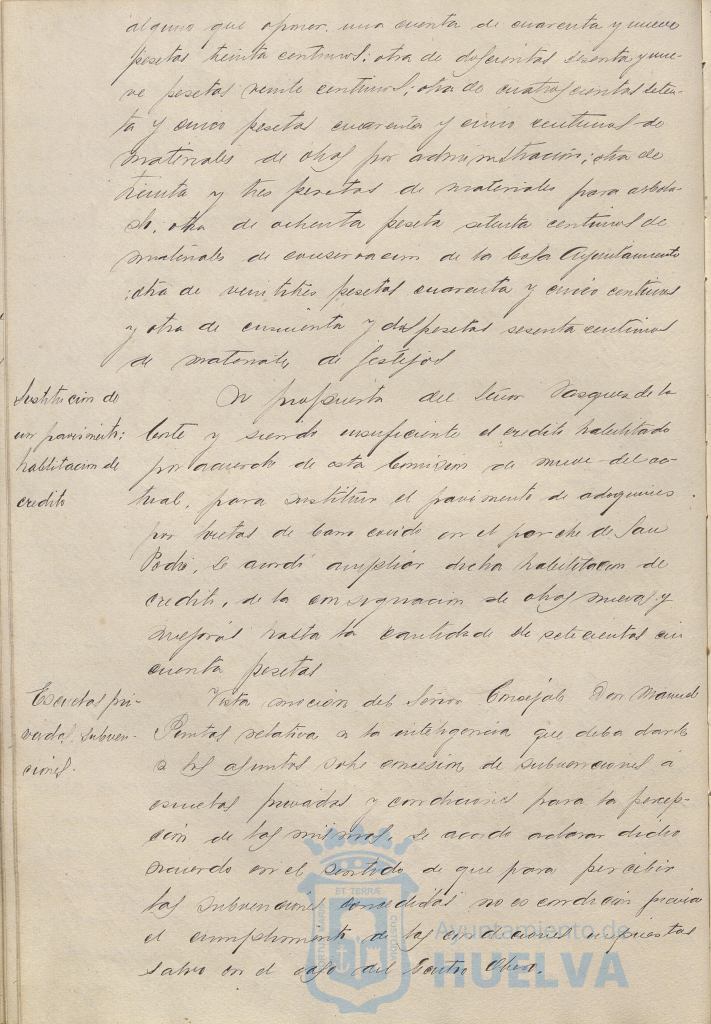 alguno que oponer, una cuenta de cuarenta y nueve
pesetas treinta centimos; otra de doscientas sesenta y nue-
ve pesetas veinte centimos; otra de cuatrocientas seten-
ta y cinco pesetas cuarenta y cinco centimos de
materiales de obras por administración; otra de
treinta y tres pesetas de materiales para arbola-
do; otra de ochenta peseta setenta centimos de
materiales de conservacion de la Casa Ayuntamiento
; otra de veintitres pesetas cuarenta y cinco centimos
y otra de cincuenta y dos pesetas sesenta centimos
de materiales de festejos
Sustitucion de
un pavimento;
habilitacion de
credito
A propuesta del Señor Vasquez de la
Corte y siendo insuficiente el credito habilitado
por acuerdo de esta Comision de nueve del ac-
tual, para sustituir el pavimento de adoquines
por losetas de barro cocido en el porche de San
Pedro, se acordó ampliar dicha habilitacion de
credito, de la consignacion de obras nuevas y
mejoras hasta la cantidad de setecientas cin
cuenta pesetas
Escuelas pri-
vadas, subven-
ciones.
Vista mocion del Señor Concejal Don Manuel
Pontes relativa a la inteligencia que deba darse
a los asuntos sobre concesion de subvenciones á
escuelas privadas y condiciones para la percep-
ción de las mismas, se acordó aclarar dicho
acuerdo en el sentido de que para percibir
las subvenciones concedidas no es condicion previa
el cumplimiento de las condiciones impuestas
salvo en el caso del Centro Obrero.
Ayuntamiento de
HUELVA